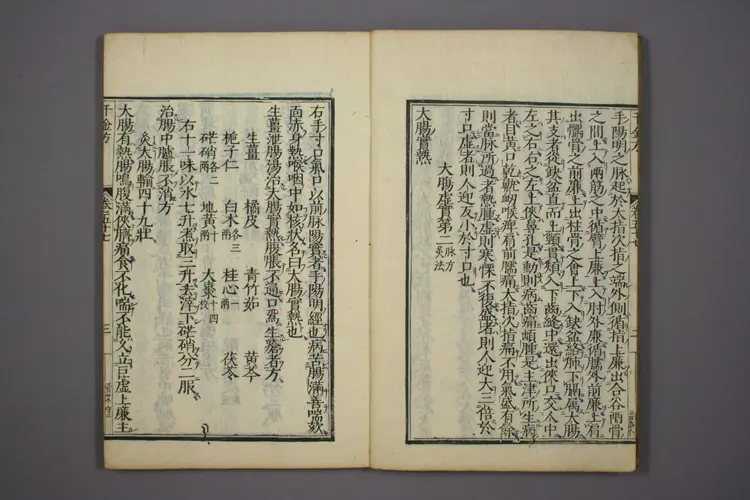 手陽明之脉起於大指次指之端外側循指上廉出合谷兩骨
之間上入兩筋之中循臂上廉上入肘外廉循臑外前廉上肩
出髃骨之前廉上出柱骨之會上下入缺盆絡肺下膈屬大腸
其支者從缺盆直而上頸貫頰入下齒縫中還出俠口交人中
左之右右之左上俠鼻孔是動則病齒痛䪼腫是主津所生病
者目黃口乾鼽衄喉痺肩前臑痛大指次指痛不用氣盛有餘
則當脉所過者熱腫虛則寒慄不復盛者則人迎大三倍於
寸口虛者則人迎反小於寸口也
大腸虛實第二 脉方灸法
大腸實熱
右手寸口氣口以前脉陽實者手陽明經也病苦腸滿善喘欬
面赤身熱喉咽中如核狀名曰大腸實熱也
生薑泄腸湯治大腸實熱腹脹不通口爲生瘡者方
生薑 橘皮 青竹茹 黃芩
梔子仁 白术各三兩 桂心一兩 茯苓
芒硝各二兩 地黃十兩 大棗十四枚
右十一味以水七升煮取三升去滓下芒硝分二服
治腸中臚脹不消方
灸大腸輸四十九壯
大腸有熱腸鳴腹滿俠臍痛食不化喘不能久立巨虛上廉主
千金方
卷五十七
三